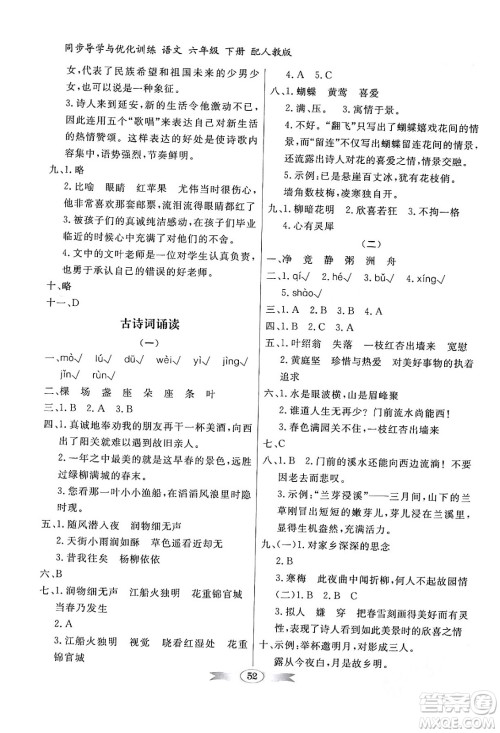 同步导学与优化训练 语文 六年级 下册 配人教版
女，代表了民族希望和祖国未来的少男少
女，是一种象征。
3. 诗人来到延安，新的生活令他激动不已，
连用五个“歌唱”来表达自己对新的生活
的热情赞颂。这样表达的好处是使诗歌内
容进一步深化，语势强烈，节奏鲜明。
九、1. 略
2. 比喻 眼睛 红苹果 尤其让我伤心的是，
他非常喜欢那套邮票，流泪只能更伤他的心
3. 被孩子们的真诚纯洁感动，在孩子们毕业
临行前还能弥补自己的过失而感到安慰。
4. 文中的文叶老师是个关爱学生，勇于承
认自己的错误的好老师。
十、略
十一、D
古诗词诵读
（一）
一、mò√ lú√ dù√ wèi√ jìng√
jīn√ rǔn√
二、棵 场 盏 座 朵 条 叶
三、1. B 2. A
四、1. 真诚地奉劝我的朋友再干一杯美酒，向
西出了阳关就难以遇到故旧亲人。
2. 一年之中最美的就是这早春的景色，它远
胜过绿柳满城的春末。
3. 您看那一叶小小渔船，在滔滔风浪里时隐
时现。
五、1. 随风潜入夜 润物细无声
2. 天街小雨润如酥 草色遥看近却无
3. 昔我往矣 杨柳依依
六、B
七、1. 润物细无声 江船火独明 花重锦官城
当春乃发生
2. A
3. 江船火独明 视觉 晓看红湿处 花重
锦官城
4. A 5. C
八、1. 蝴蝶 黄莺 喜爱
2. 满、压。 3. 寓情于景。
4. 不好。“翻飞”只写出了蝴蝶嬉戏花间的情
景，而“留连”不仅写出了蝴蝶嬉戏花间的情
景，还流露出诗人对春的喜爱之情，情景交融。
5. 示例：昆虫喜悲思，犹有花枝俏。
墙角数枝梅，凌寒独自开。
九、1. 柳暗花明 2. 欣喜若狂 3. 不拘一格
4. 心有灵犀
（二）
一、净 竞 静 粥 洲 舟
二、1. qí√ 2. hé√ 3. bǔ√ 4. xíng√
5. shào√
三、1. D 2. C
四、1. B 2. D 3. A
五、1. 叶绍翁 失落 一枝红杏出墙来 宽慰
2. 黄庭坚 珍惜与热爱 对美好事物的
追求
六、1. 水是眼波横，山是眉峰聚
2. 谁道人生无再少？门前流水尚能西！
3. 春色满园关不住，一枝红杏出墙来
七、C
八、1. B 2. 门前的溪水还能向西边流淌！ 3. 不要
因老去而悲叹时光的流逝！
3. 示例：“兰芽浸溪”——三月间，山下的兰
草刚抽出短短的嫩芽儿，芽儿浸在兰溪里，
显得生机盎然，洁净鲜亮。
九、（一）1. 对家乡深深的思念
2. A
3. 寒梅 此夜曲中闻折柳，何人不起故园情
（二）1. A 2. B
3. 拟人 嫌 穿 示例：春天来得太晚
了！表达了诗人对如此美景时的欣喜之情
十、示例：江上往来人，但爱鲈鱼美。
露从今夜白，月是故乡明。
52